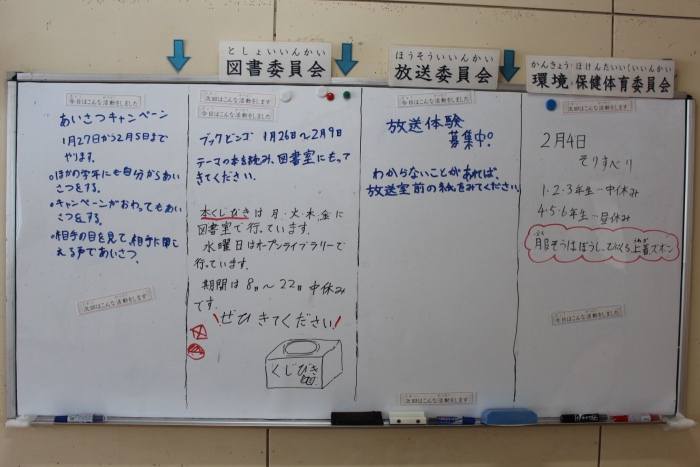 としょいいんかい
図書委員会
ほうそういいんかい
放送委員会
かんきょう・ほけんたいいくいいんかい
環境・保健体育委員会
今日はこんな活動をしました
あいさつキャンペーン
1月27日から2月5日まで
やります。
・ほかの学年にも自分からあい
さつをする。
・キャンペーンがおわってもあい
さつをする。
・相手の目を見て、相手に聞こ
える声であいさつ。
次回はこんな活動をします
次回はこんな活動をします
今日はこんな活動をしました
ブックビンゴ 1月26日~2月9日
テーマの本を読み、図書室にもって
きてください。
本くじびきは月・火・木・金に
図書室で行っています。
水曜日はオープンライブラリーで
行っています。
期間は8日~22日 中休み
です。
ぜひきてください!
くじびき
今日はこんな活動をしました
放送体験
募集中!
わからないことがあれば、
放送室前の紙をみてください。
次回はこんな活動をします
次回はこんな活動をします
2月4日
そりすべり
1・2・3年生…中休み
4・5・6年生…昼休み
服そうはぼうし、てぶくろ、上着、ズボン
今日はこんな活動をしました